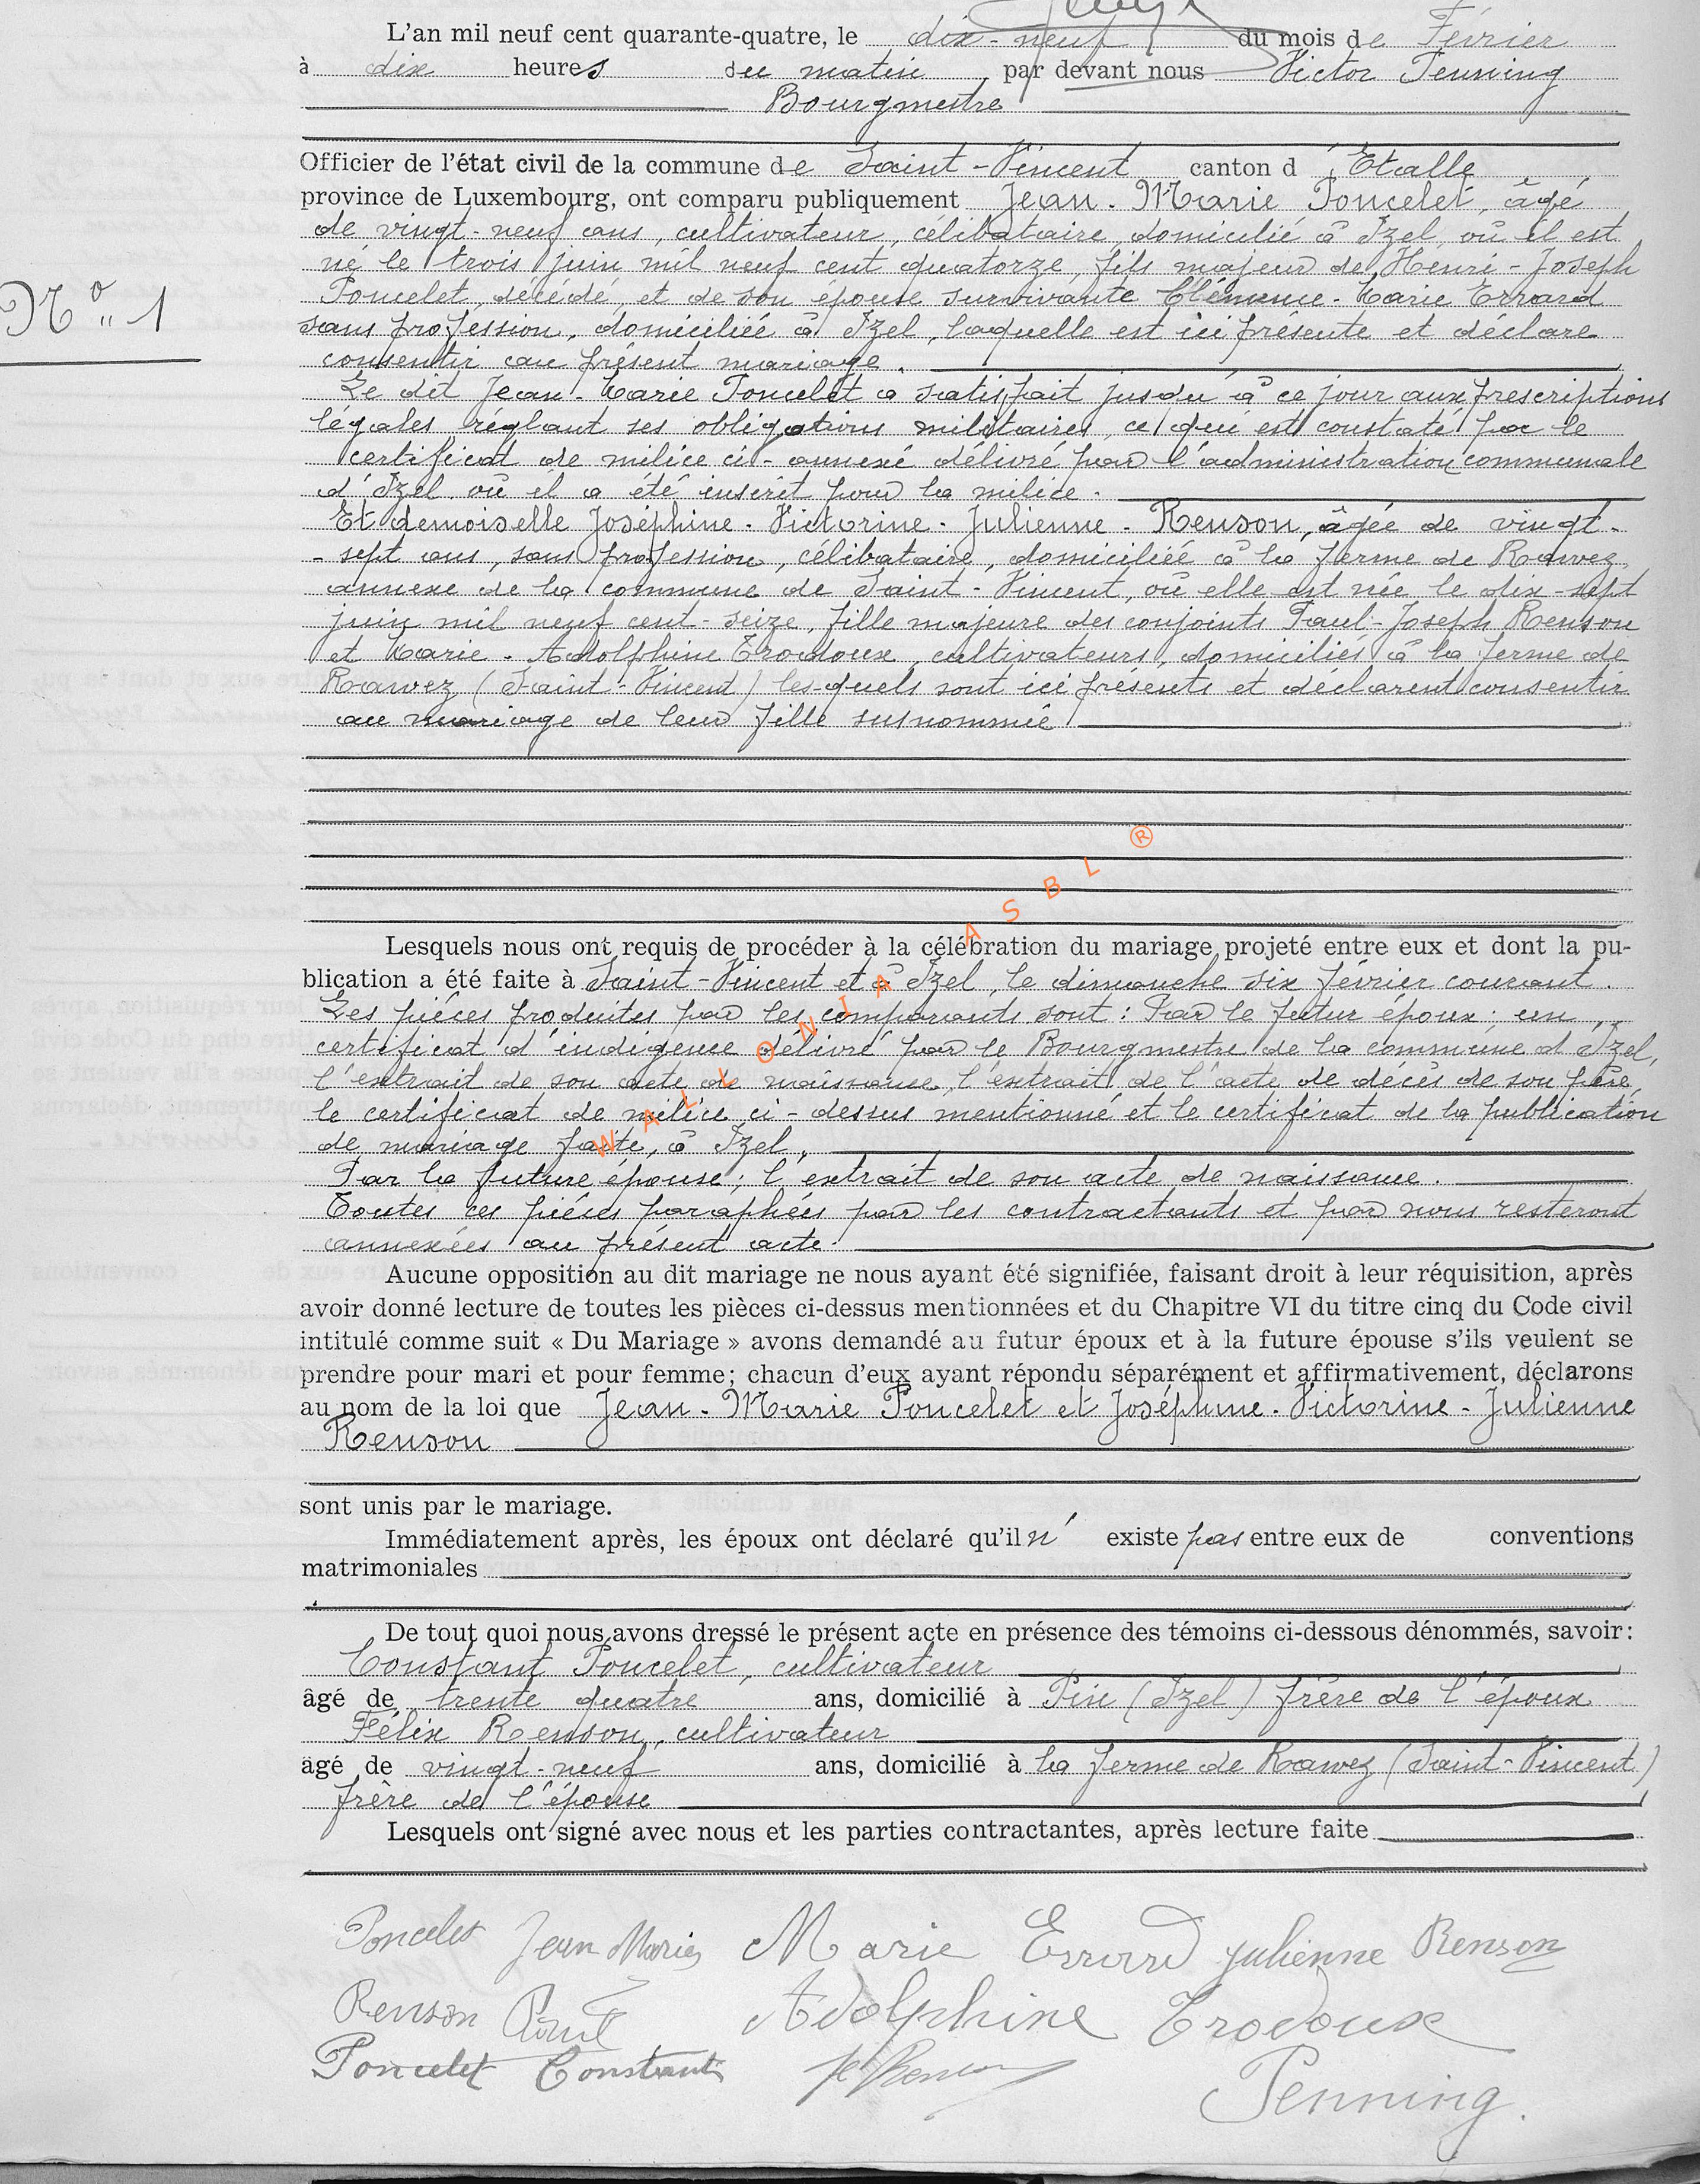 L'an mil neuf cent quarante-quatre, le dix-neuf du mois de Février
à dix heures du matin par devant nous Victor Penning
Bourgmestre
Officier de l'état civil de la commune de Saint-Vincent canton d'Etalle
province de Luxembourg, ont comparu publiquement Jean-Marie Poncelet, âgé
de vingt-neuf ans, cultivateur, célibataire, domicilié à Izel, où il est
né le trois juin mil neuf cent quatorze, fils majeur de Henri-Joseph
Nº 1
Poncelet, décédé, et de son épouse survivante Clémence-Marie Errard
sans profession, domiciliée à Izel, laquelle est ici présente et déclare
consentir au présent mariage.
Le dit Jean-Marie Poncelet a satisfait jusqu'à ce jour aux prescriptions
légales réglant ses obligations militaires, ce qui est constaté par le
certificat de milice ci-annexé délivré par l'administration communale
d'Izel où il a été inscrit pour la milice.
Et demoiselle Joséphine-Victorine-Julienne-Renson, âgée de vingt-
-sept ans, sans profession, célibataire, domiciliée à la ferme de Rawez,
annexe de la commune de Saint-Vincent, où elle est née le dix-sept
juin mil neuf cent-seize, fille majeure des conjoints Paul-Joseph Renson
et Marie-Adolphine Trodoux, cultivateurs, domiciliés à la ferme de
Rawez (Saint-Vincent) les-quels sont ici présents et déclarent consentir
au mariage de leur fille susnommée
Lesquels nous ont requis de procéder à la célébration du mariage projeté entre eux et dont la pu-
blication a été faite à Saint-Vincent et à Izel, le dimanche six février courant.
Les pièces produites par les comparants sont : Par le futur époux : un
certificat d'indigence délivré par le Bourgmestre de la commune d'Izel,
l'extrait de son acte de naissance, l'extrait de l'acte de décès de son père,
le certificat de milice ci-dessus mentionné et le certificat de la publication
de mariage faite à Izel.
Par la future épouse ; l'extrait de son acte de naissance.
Toutes ces pièces paraphées par les contractants et par nous resteront
annexées au présent acte.
Aucune opposition au dit mariage ne nous ayant été signifiée, faisant droit à leur réquisition, après
avoir donné lecture de toutes les pièces ci-dessus mentionnées et du Chapitre VI du titre cinq du Code civil
intitulé comme suit « Du Mariage » avons demandé au futur époux et à la future épouse s'ils veulent se
prendre pour mari et pour femme; chacun d'eux ayant répondu séparément et affirmativement, déclarons
au nom de la loi que Jean-Marie Poncelet et Joséphine-Victorine-Julienne
Renson
sont unis par le mariage.
Immédiatement après, les époux ont déclaré qu'il n'existe pas entre eux de conventions
matrimoniales
De tout quoi nous avons dressé le présent acte en présence des témoins ci-dessous dénommés, savoir:
Constant Poncelet, cultivateur
âgé de trente quatre ans, domicilié à Pin (Izel) frère de l'époux
Félix Renson, cultivateur
âgé de vingt-neuf ans, domicilié à la ferme de Rawez (Saint-Vincent)
frère de l'épouse
Lesquels ont signé avec nous et les parties contractantes, après lecture faite
Poncelet Jean Marie Marie Errard Julienne Renson
Renson Paul Adolphine Trodoux
Poncelet Constant Renson
Penning.
WALLONIA ASBL ®